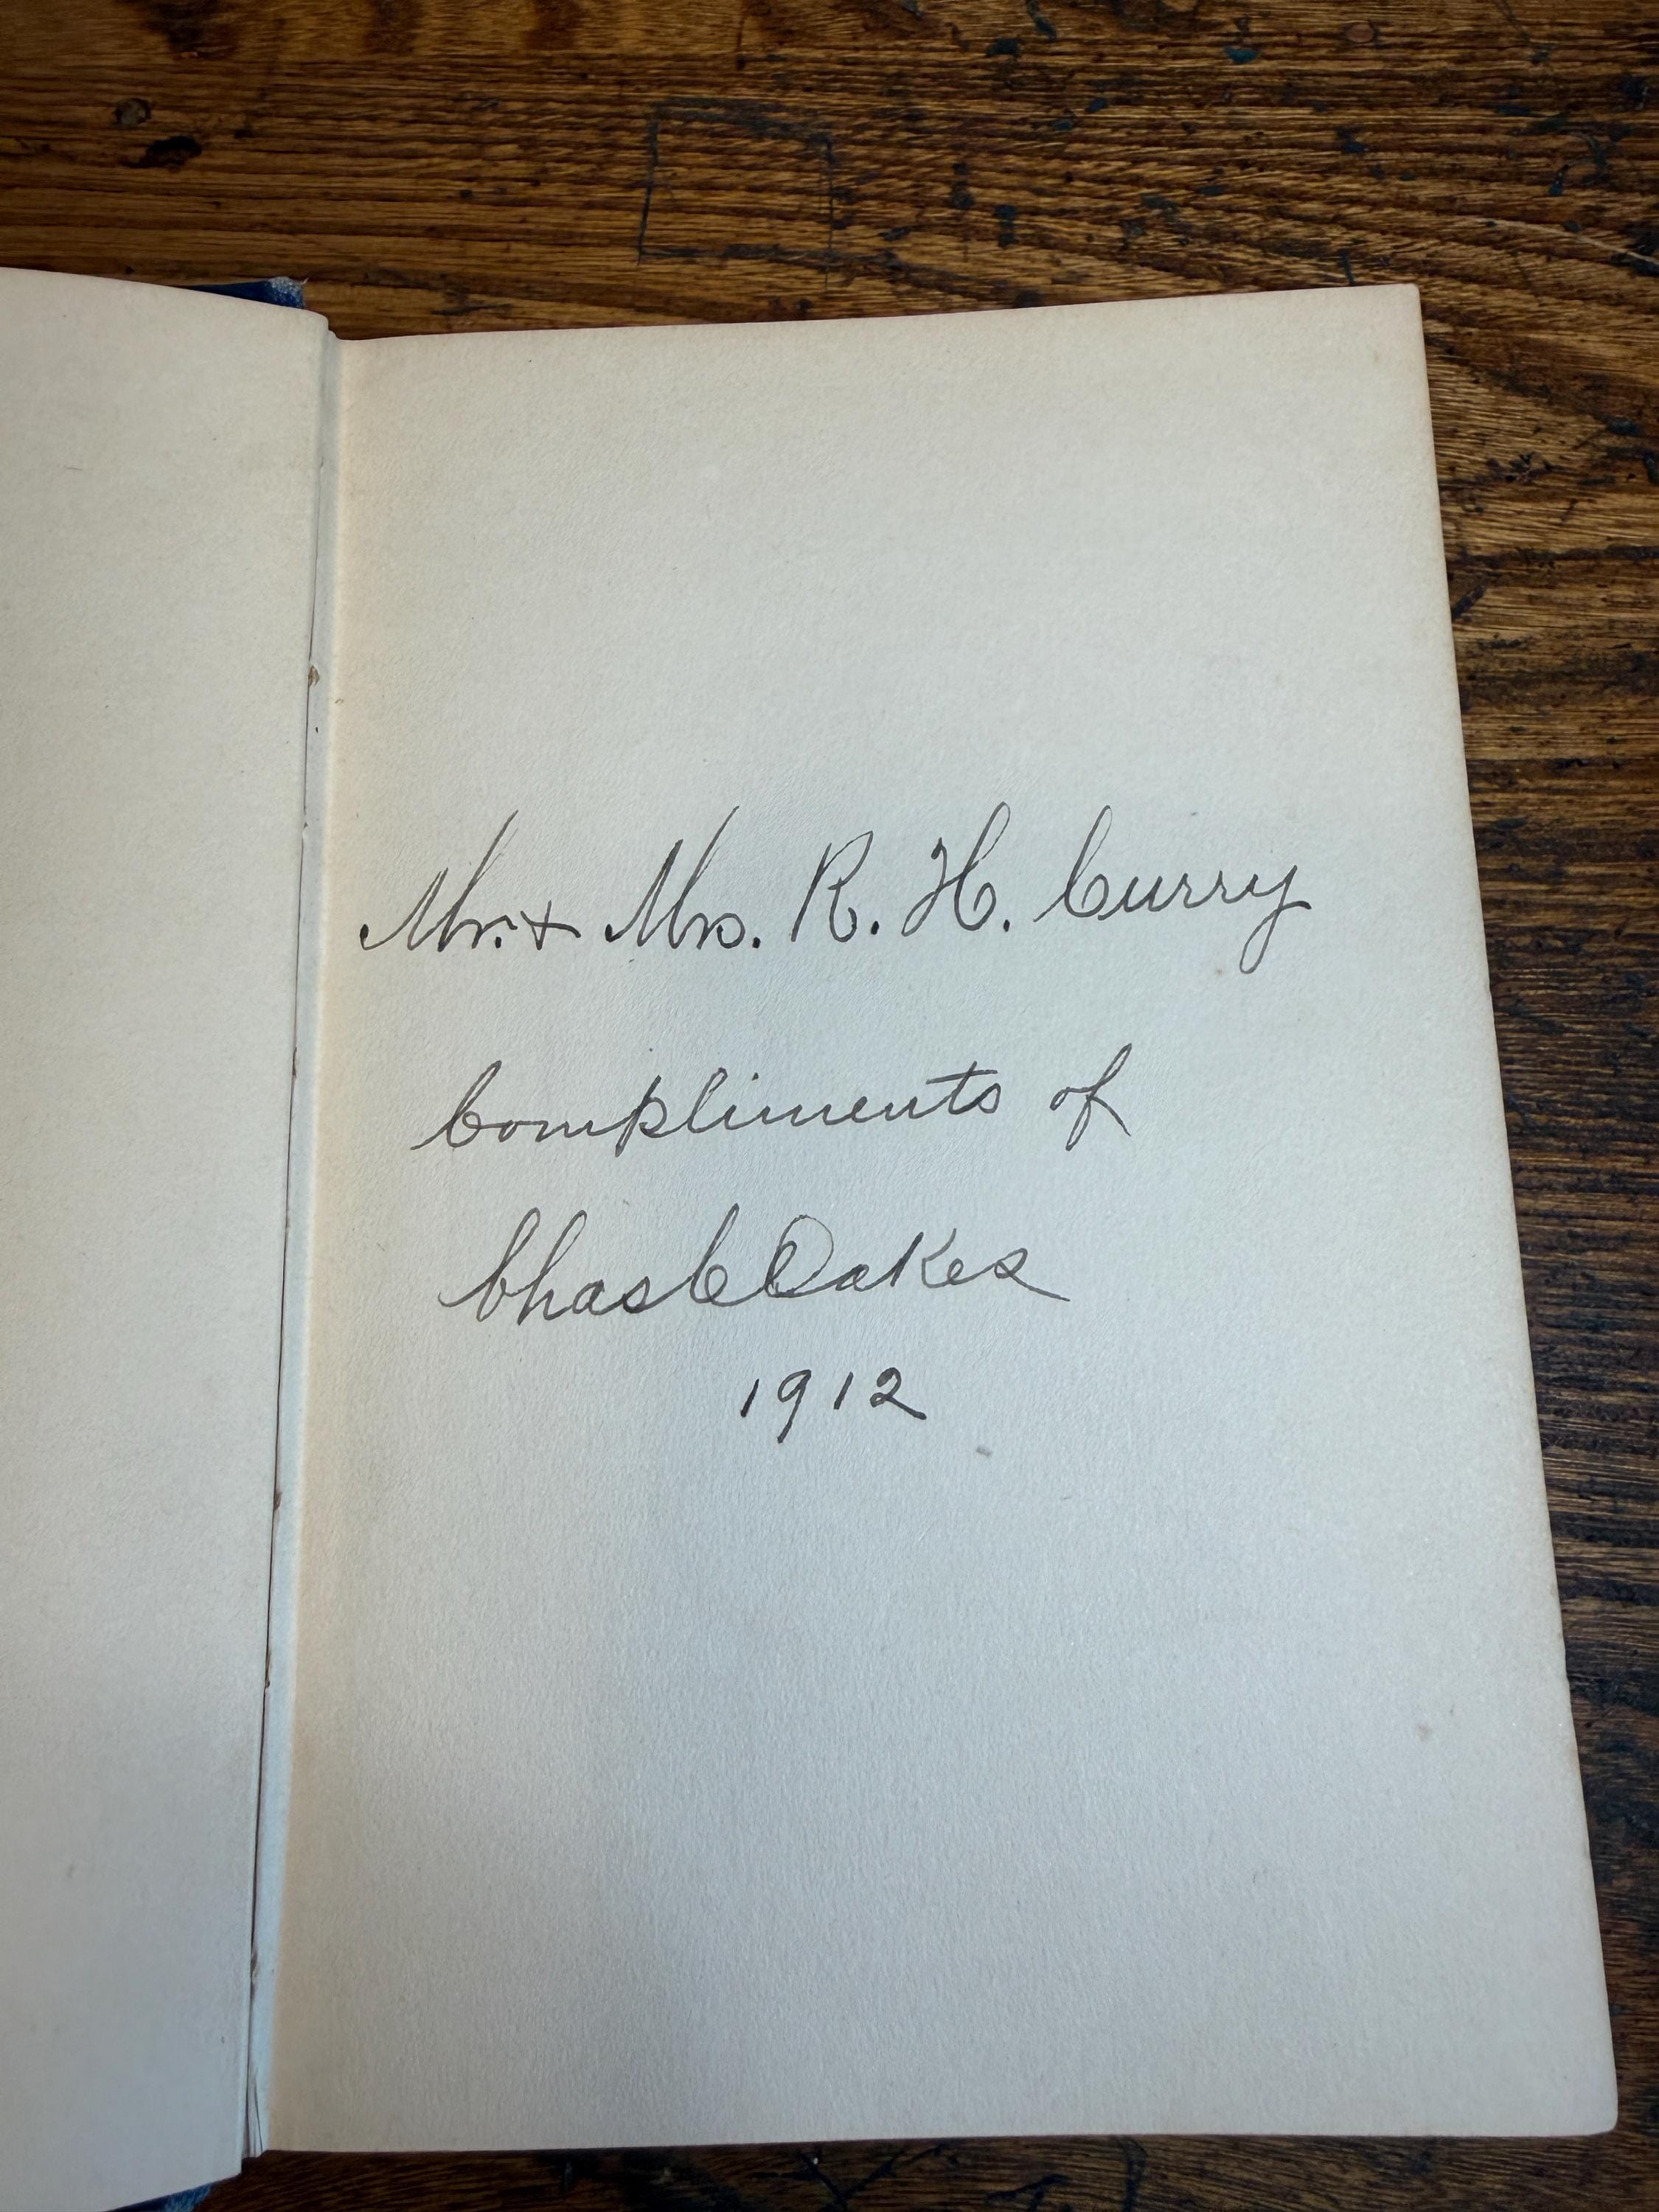 Mr. + Mrs. R. H. Curry
Compliments of
Chas C Oakes
1912